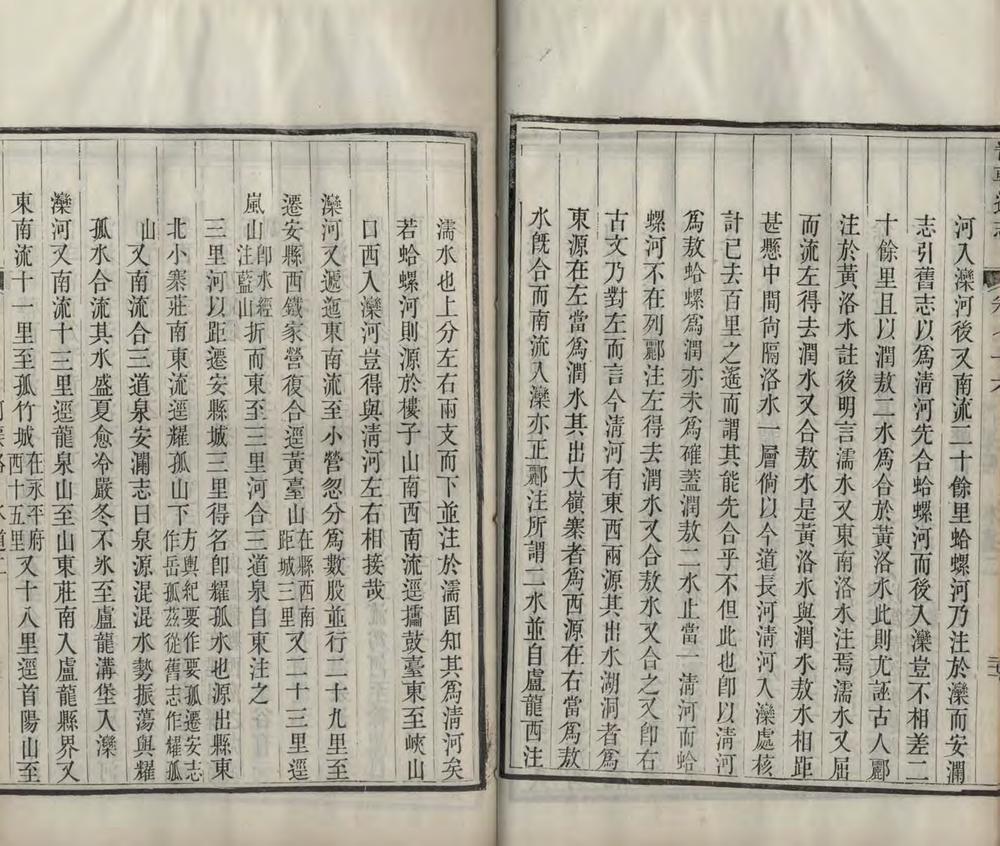 河入灤河後又南流二十餘里蛤螺河乃注於灤而安瀾
志引舊志以爲清河先合蛤螺河而後入灤豈不相差二
十餘里且以潤敖二水爲合於黃洛水此則尤誣古人酈
注於黃洛水註後明言濡水又東南洛水注焉濡水又屈
而流左得去潤水又合敖水是黃洛水與潤水敖水相距
甚懸中間尚隔洛水一層倘以今道長河清河入灤處核
計已去百里之遙而謂其能先合乎不但此也卽以清河
爲敖蛤螺爲潤亦未爲確蓋潤敖二水止當一清河而蛤
螺河不在列酈注左得去潤水又合敖水又合之又卽右
古文乃對左而言今清河有東西兩源其出水湖洞者爲
東源在左當爲潤水其出大嶺寨者爲西源在右當爲敖
水旣合而南流入灤亦正酈注所謂二水並自盧龍西注
濡水也上分左右兩支而下並注於濡固知其爲清河矣
若蛤螺河則源於樓子山南西南流逕擂鼓臺東至峽山
口西入灤河豈得與清河左右相接哉
灤河又遞迤東南流至小營忽分爲數股並行二十九里至
遷安縣西鐵家營復合逕黃臺山在縣西南距城三里又二十三里逕
嵐山卽水經注藍山折而東至三里河合三道泉自東注之
三里河以距遷安縣城三里得名卽耀孤水也源出縣東
北小寨莊南東流逕耀孤山下方輿紀要作要孤遷安志作岳孤茲從舊志作耀孤
山又南流合三道泉安瀾志曰泉源混混水勢振蕩與耀
孤水合流其水盛夏愈冷嚴冬不氷至盧龍溝堡入灤
灤河又南流十三里逕龍泉山至山東莊南入盧龍縣界又
東南流十一里至孤竹城在永平府西十五里又十八里逕首陽山至